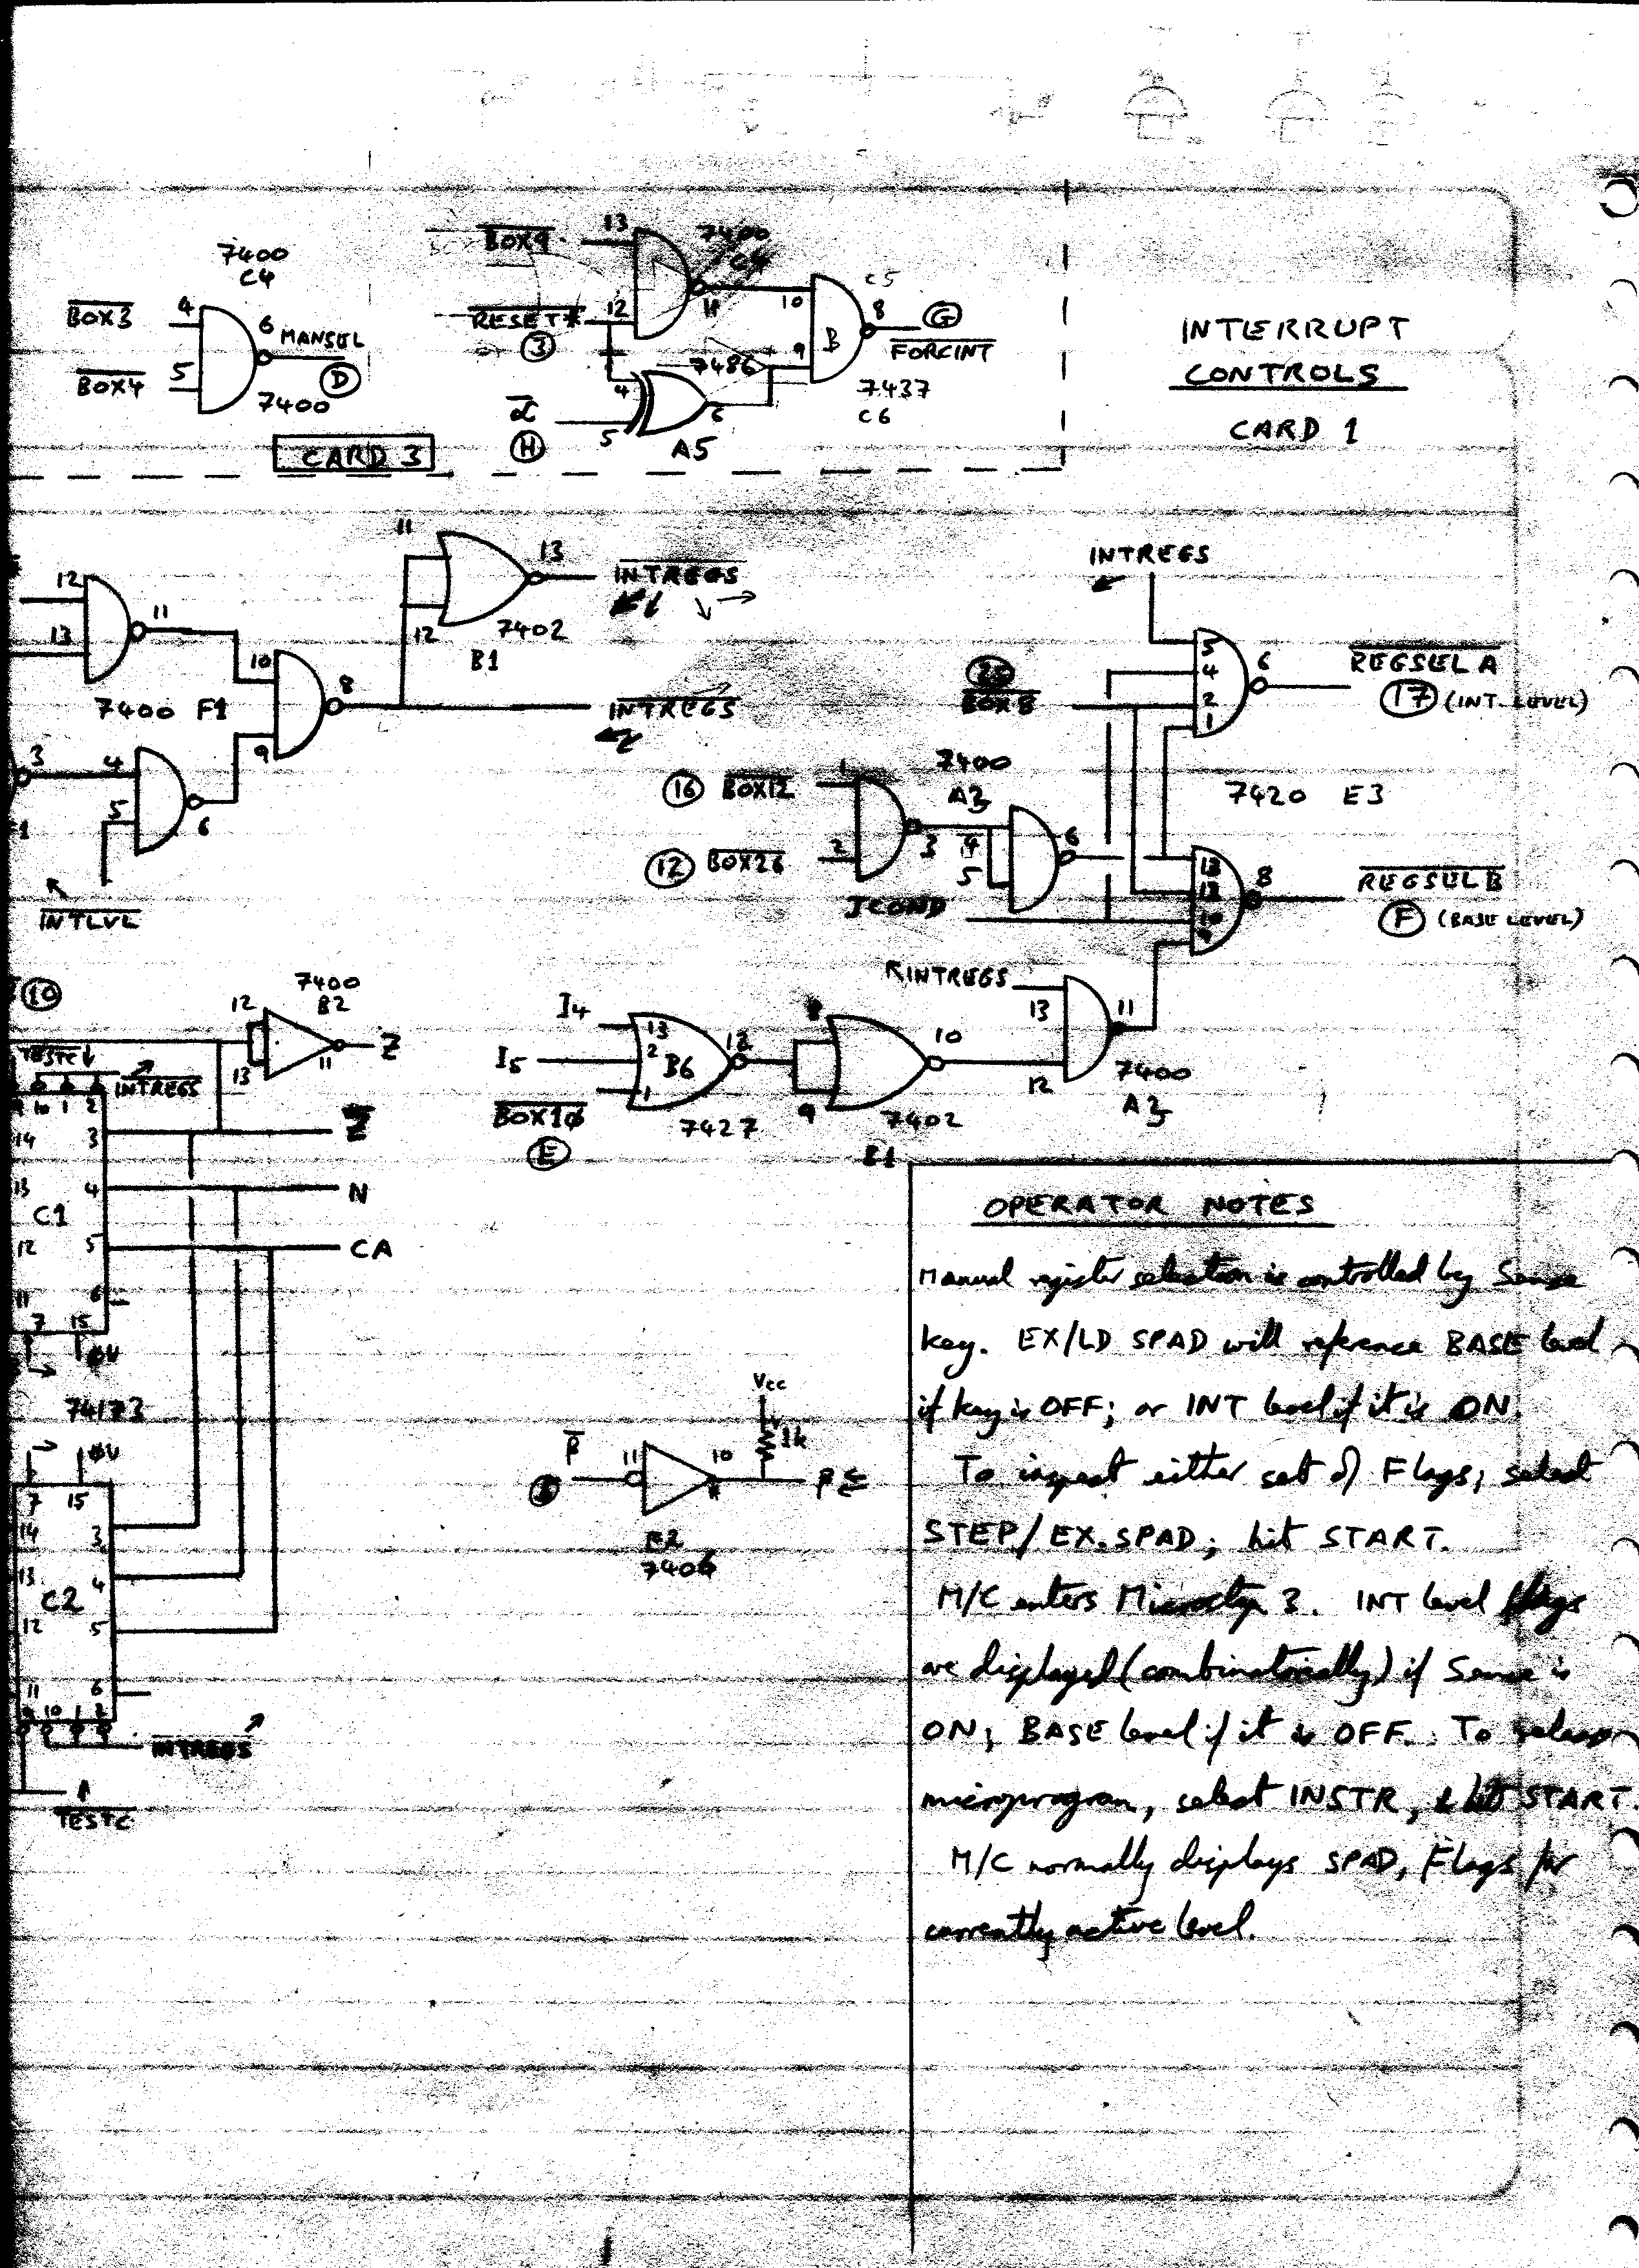 7400
C4
BOX3
4
6
MANSEL
D
BOX4
5
7400
CARD 3
BOX9
13
7400
C4
RESET*
12
11
3
10
C5
8
G
B
9
FORCINT
7486
4
7437
C6
α
H
5
6
A5
INTERRUPT
CONTROLS
CARD 1
12
13
11
11
13
INTREGS
12
7402
B1
10
7400 F1
8
9
INTREGS
3
4
5
6
INTLVL
INTREGS
5
4
2
1
6
REGSEL A
17 (INT. LEVEL)
BOX8
16 BOX12
1
7400
A3
7420 E3
12 BOX26
2
3
4
5
6
13
12
10
9
8
REGSEL B
F (BASE LEVEL)
JCOND
INTREGS
13
11
12
7400
A3
10
7400
B2
12
13
11
Z
TESTC
INTREGS
9 10 1 2
14 3
Z
13 4
N
C1
12 5
CA
11 6
7 15
0V
74173
0V
7 15
14 3
13 4
C2
12 5
11 6
9 10 1 2
INTREGS
TESTC
I4
I5
13
2
1
B6
12
BOX10
E
7427
8
9
10
7402
B1
Vcc
1k
β
11
10
E2
OPERATOR NOTES
Manual register selection is controlled by Sense
key. EX/LD SPAD will reference BASE level
if key is OFF; or INT level if it is ON.
To inspect either set of Flags, select
STEP/EX.SPAD; hit START.
M/C enters Microstep 3. INT level flags
are displayed (combinatorially) if Sense is
ON, BASE level if it is OFF. To
microprogram, select INSTR, & hit START.
M/C normally displays SPAD, Flags for
currently active level.